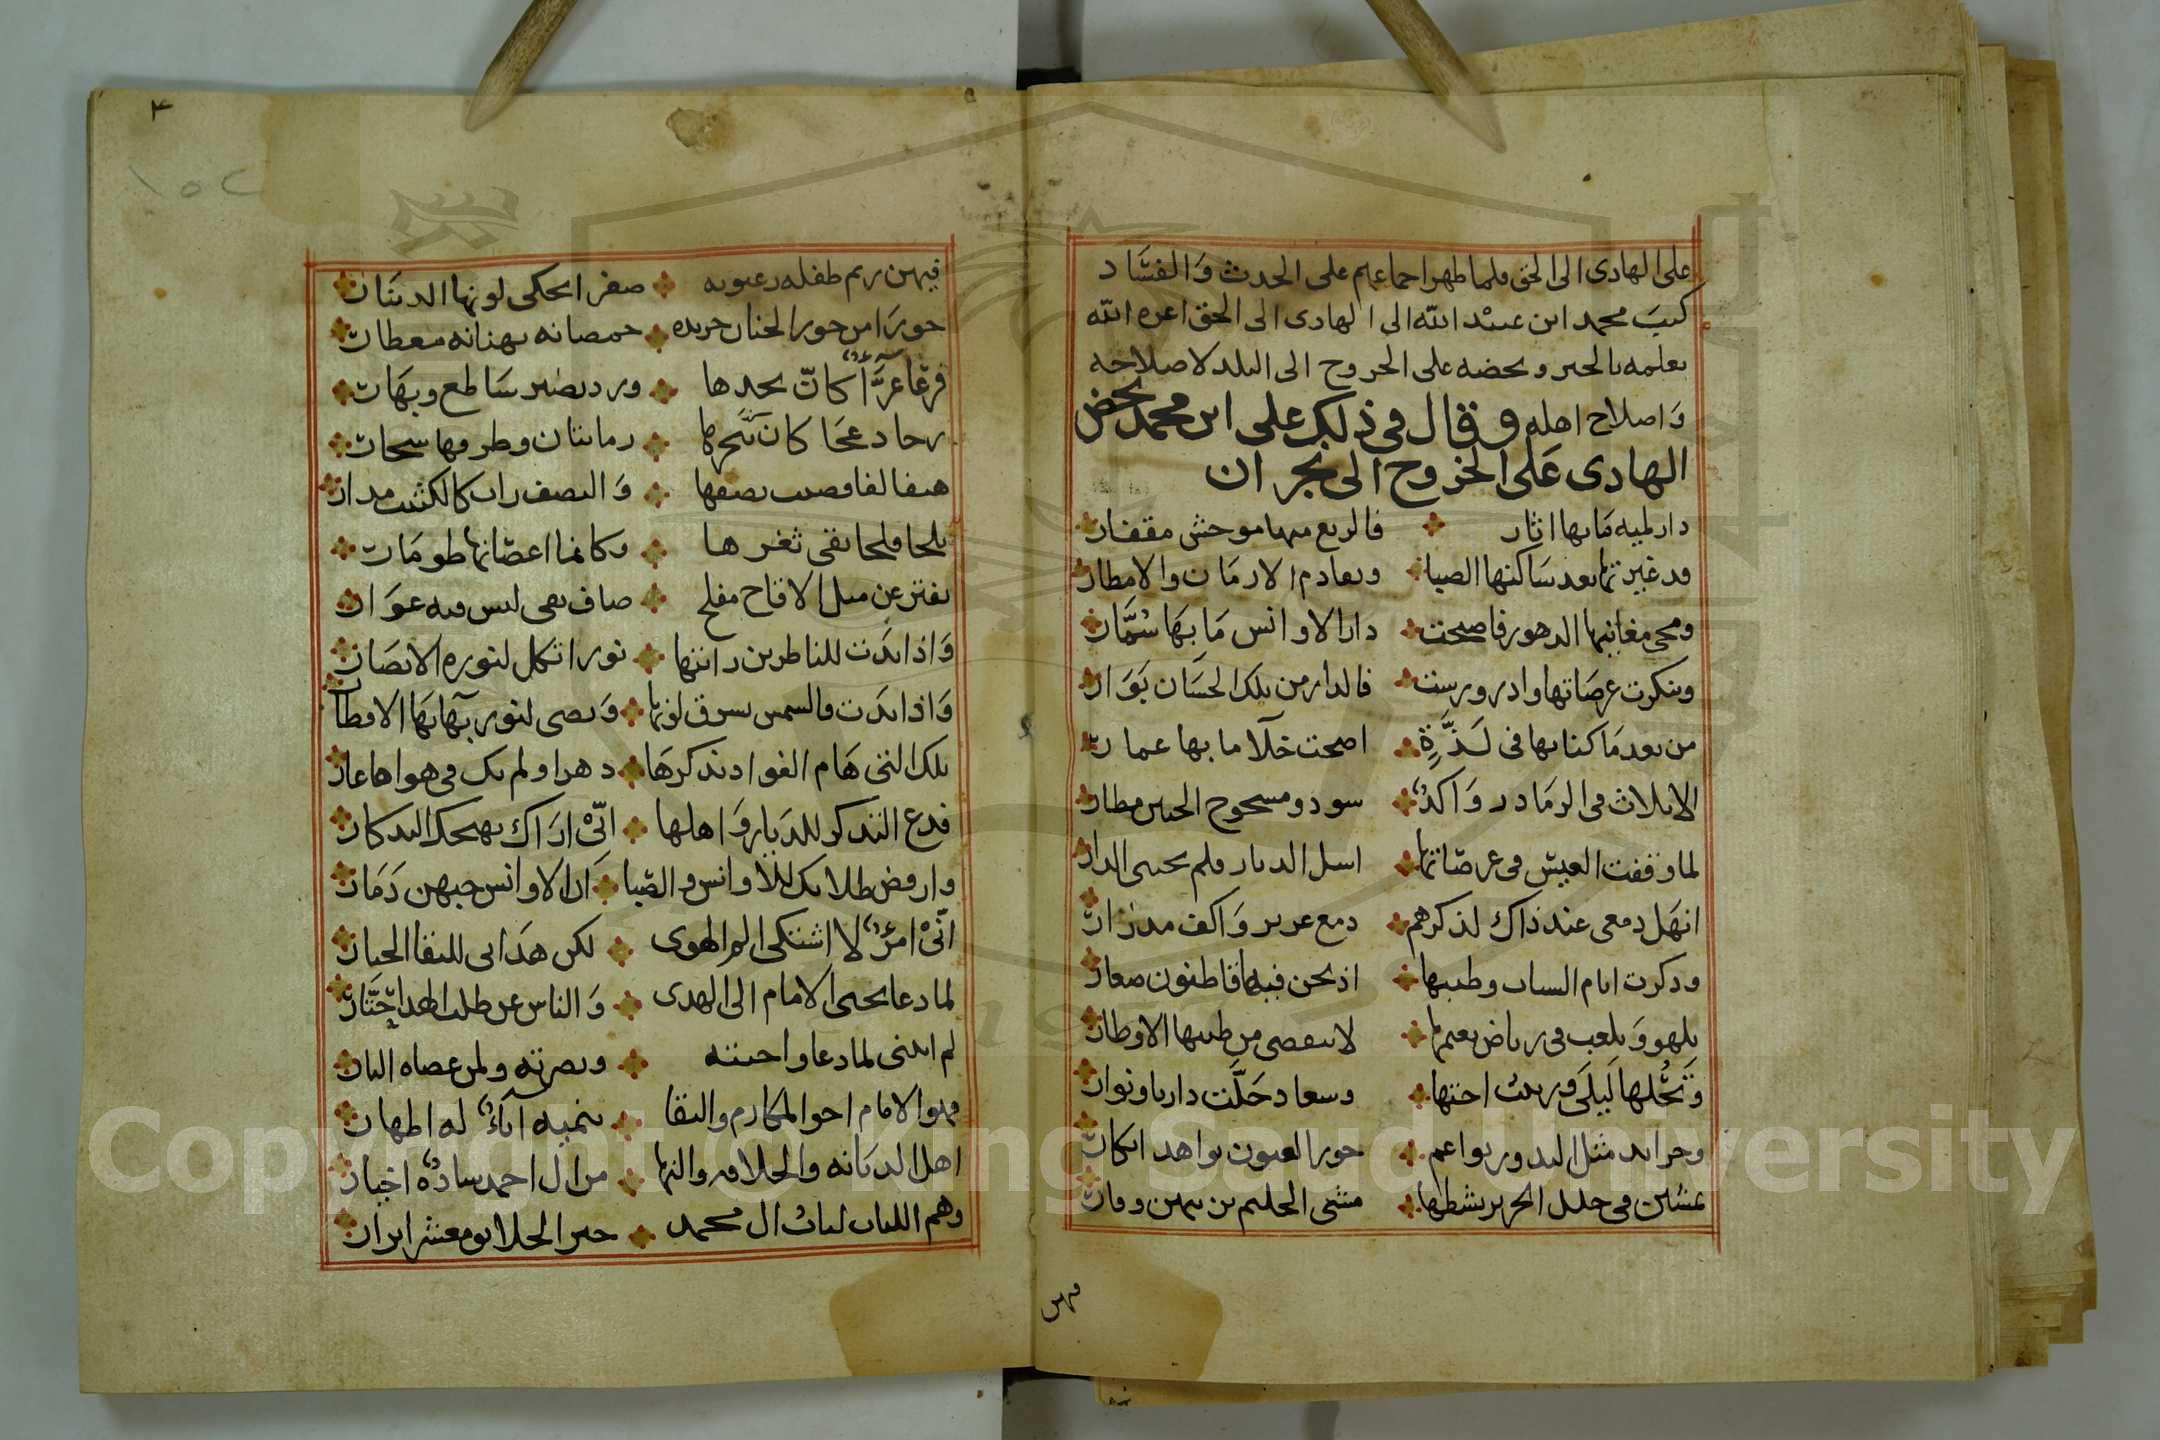 على الهادى الى الحق فلما ظهر اجماعهم على الحدث وَالفسَاد
كتبَ محمد ابن عبيْد الله الى الهادى الى الحق اعزه الله
يعلمه بالخبر ويحضه على الخروج الى البلد لاصلاحه
وَاصلاح اهله وقال فى ذلك على ابن محمد يحض
الهادى عَلى الخروج الى نجران
دار لميه مَا بها اثار فالربع منها موحش مقفار
قد غيرتها بعد سَاكنها الصبا وتقادم الازمَان والامطار
ومحى مغانيها الدهور فاصبحت دار الاوانس مَا بهَا سُمَّار
وتنكرت عرصَاتها وادرورست فالدار من تلك الحسَان بَوَار
من بعد مَا كنا بها فى لَذَّةٍ اصبحت خلآ ما بها عمار
الا ثلاث فى الرمَاد رَوَاكدٌ سود ومسحوج الجبين مطار
لما وقفت العيس فى عرصَاتها اسل الديار فلم تجبنى الدار
انهَل دمعى عند ذاك لذكرهم دمع غزير وَاكف مدرار
وذكرت ايام الشباب وطيبها اذ نحن فيها قاطنون صغار
نلهو وَنلعب فى رياض نعيمها لا تنقضى من طيبها الاوطار
وَتَحُلها لَيلَى وزينب اختها وسعاد حَلَّت دارنا ونوار
وخرايد مثل البدور نواعم حور العيون نواهد ابكار
يمشين فى حلل الحرير بشطها مشى الحليم يزينهن وقار
فهن
٣
١٥٢
فيهن ريم طفله رعبوبه صفرا يحكى لونها الدينَار
حورَا من حور الجنان خريده خمصانه بهنانه معطار
فرعَا غرَّآءُ كانّ بخدها ورد يضير سَاطع وبهَار
زجا دعجَا كان بنَحرها رمانتان وطرفها سحار
هيفا لفا قضيب نصفها وَالنصف راب كالكثيب مدار
بلجا فلجا نقى ثغرها وكانما اعضانها طومَار
يفتر عن مثل الاقاح مفلج صاف نقى ليس فيه عوَار
وَاذا بدَت للناظرين رايتها نورا تكل لنوره الابصَار
وَاذا بدَت فالشمس يشرق لونها وَتضى لنور بهآيهَا الاقطار
تلك التى هَام الفواد بذكرهَا دهرا ولم يك فى هواها عار
فدع التذكر للدَيار وَاهلها انّىْ ارَاك يهيجك التذكار
وارفض طلابك للاوانس والصّبا اَن الاوانس حبهن دَمَار
انّىْ امرؤٌ لا اشتكى الم الهوى لكن هدَانى للتقا الجبار
لما دعا يحيى الامام الى الهدى وَالناس عن طلب الهدا حَيَّار
لم ابثنى لما دعا واجبته ونصرته ولمن عصاه النار
فهو الامام اخو المكارم والتقا تنميه آباءٌ له اطهار
اهل الديَانه والخلافه والنها من ال احمد سادةٌ اخيار
وهم اللباب لبابُ ال محمد خير الخلايق معشر ابرار
Copyright © King Saud University